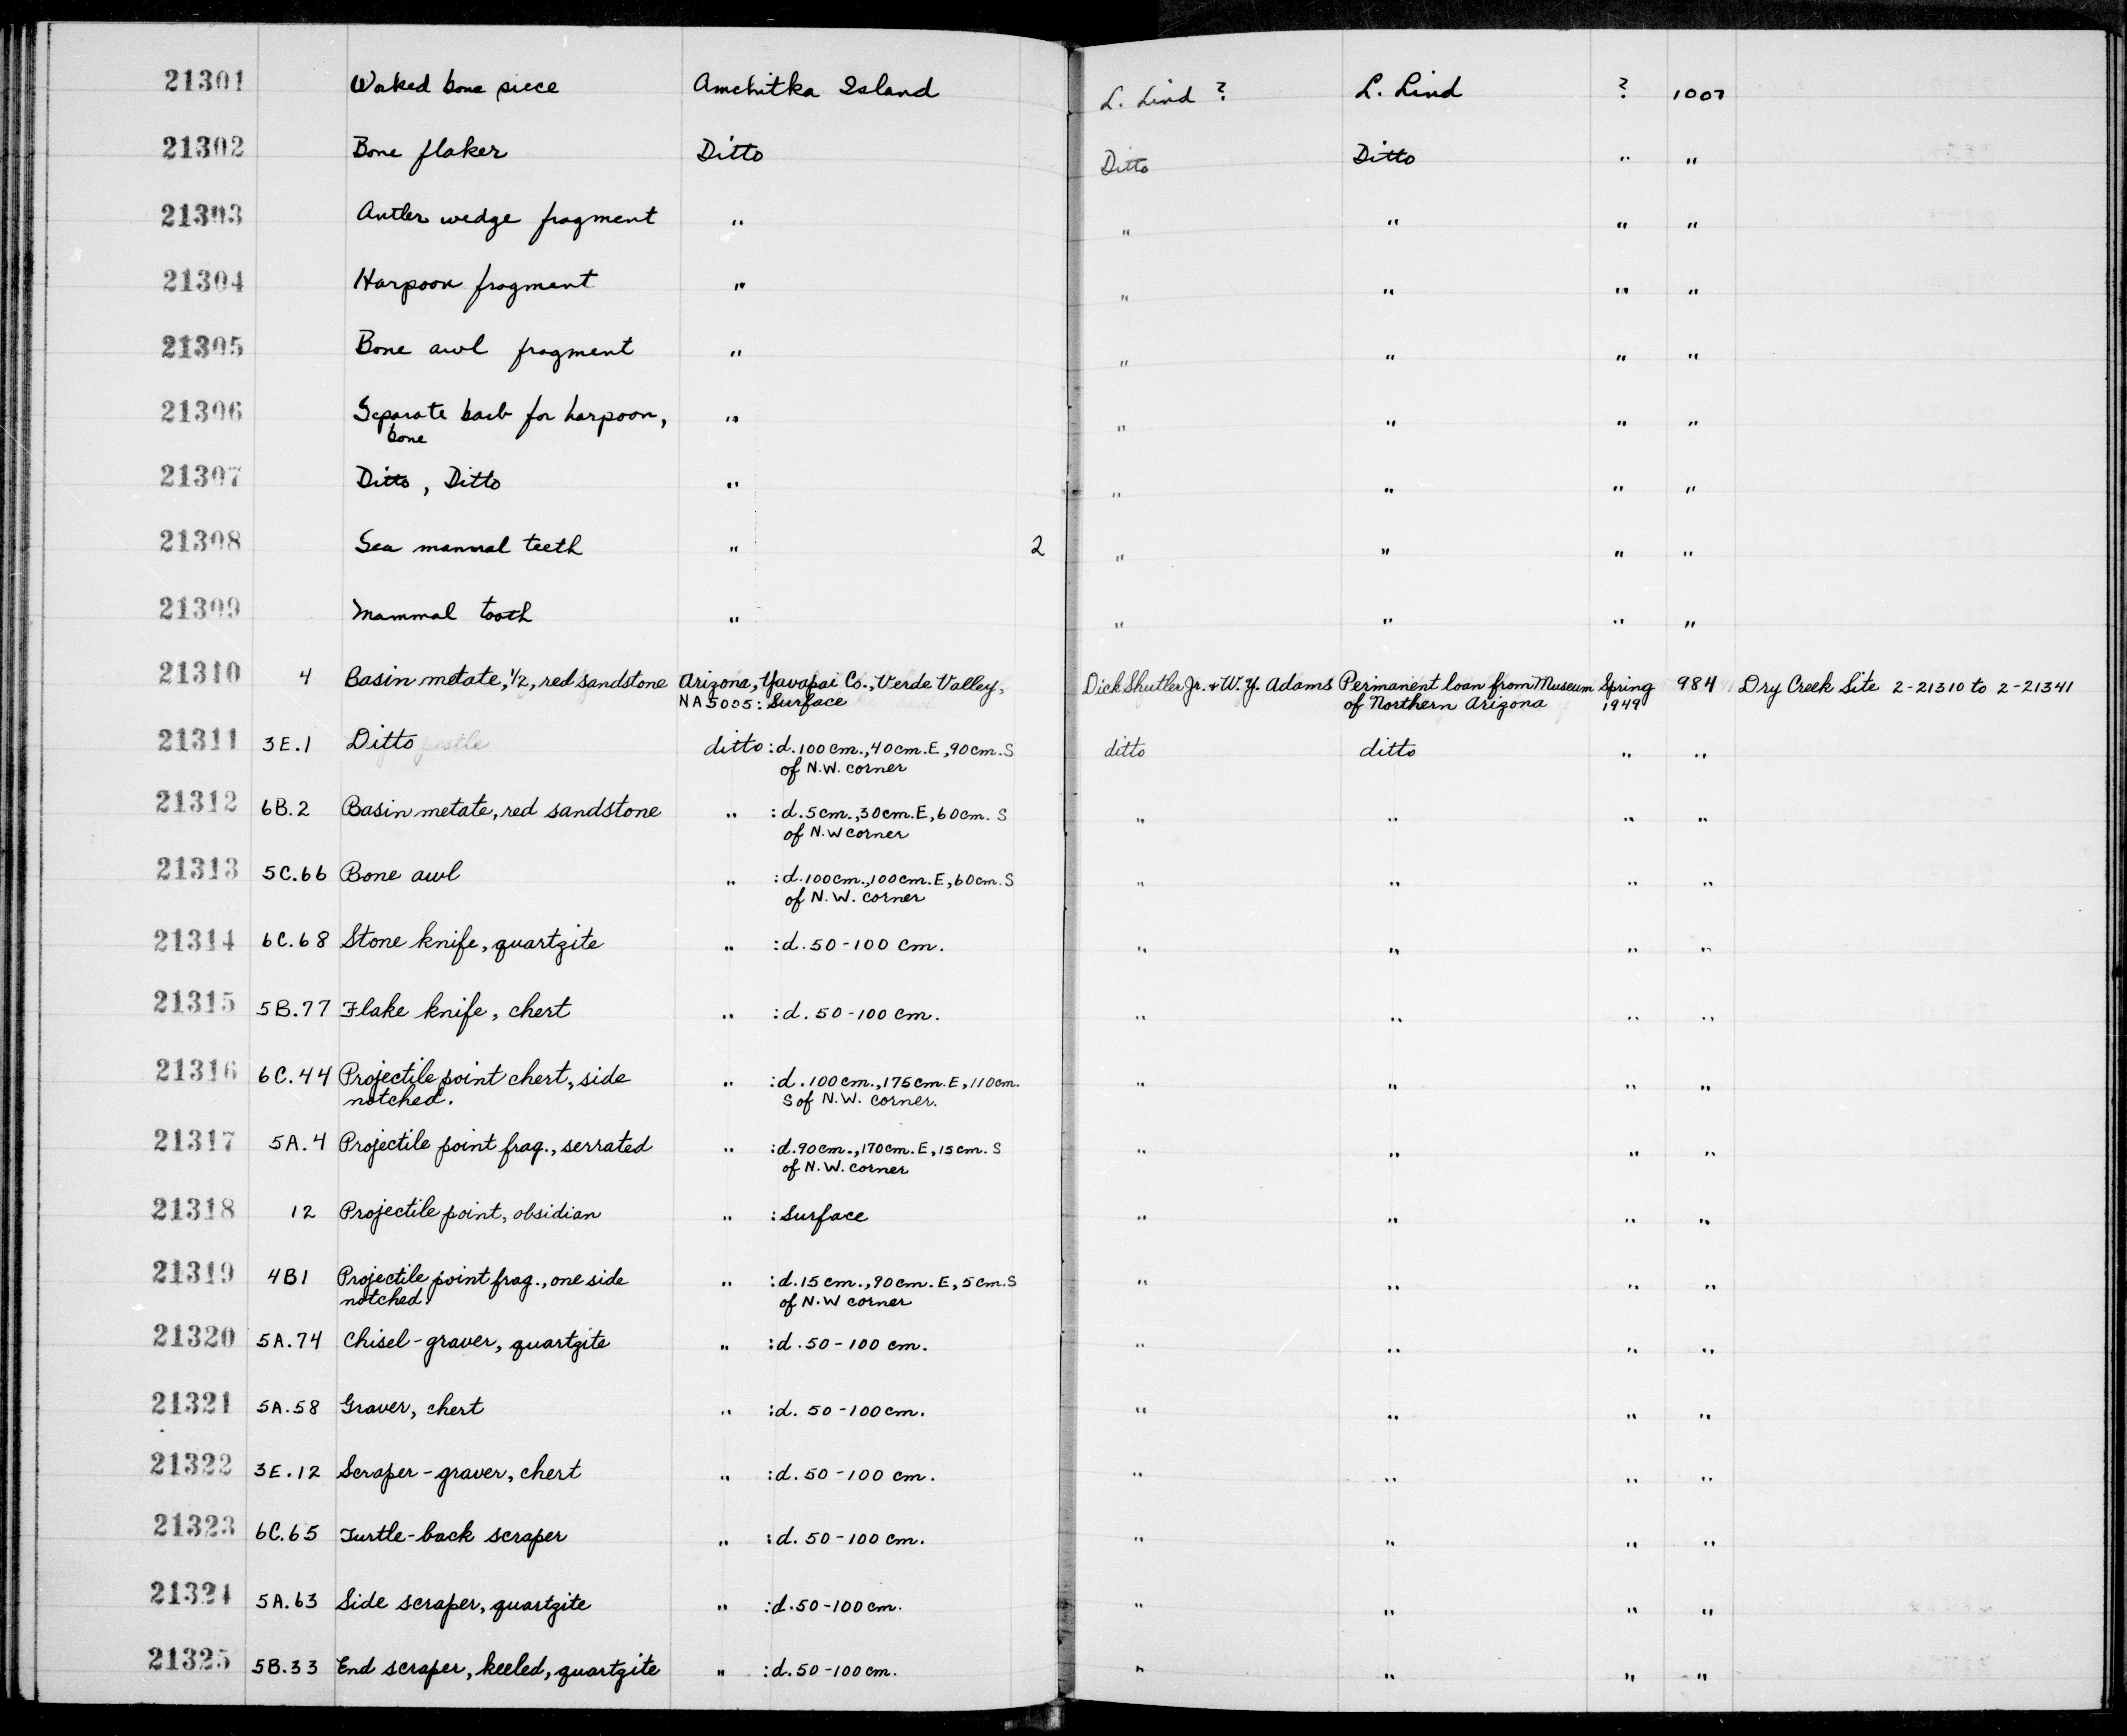 21301 Worked bone piece Amchitka Island L. Lind ? L. Lind ? 1007
21302 Bone flaker Ditto Ditto Ditto " "
21303 Antler wedge fragment " " " " "
21304 Harpoon fragment " " " " "
21305 Bone awl fragment " " " " "
21306 Separate barb for harpoon, " " " " "
bone
21307 Ditto, Ditto " " " " "
21308 Sea mammal teeth " 2 " " " "
21309 Mammal tooth " " " " "
21310 4 Basin metate, 1/2, red sandstone Arizona, Yavapai Co., Verde Valley, Dick Shutler Jr. + W.Y. Adams Permanent loan from Museum Spring 984 Dry Creek Site 2-21310 to 2-21341
NA5005: Surface of Northern Arizona 1949
21311 3E.1 Ditto ditto :d.100cm.,40cm.E,90cm.S ditto ditto " "
of N.W. corner
21312 6B.2 Basin metate, red sandstone " :d.5cm.,30cm.E,60cm. S " " " "
of N.W corner
21313 5C.66 Bone awl " :d.100cm.,100cm.E,60cm.S " " " "
of N.W. corner
21314 6C.68 Stone knife, quartzite " :d.50-100 cm. " " " "
21315 5B.77 Flake knife, chert " :d.50-100 cm. " " " "
21316 6C.44 Projectile point chert, side " :d.100cm.,175cm.E,110cm. " " " "
notched. S of N.W. corner.
21317 5A.4 Projectile point frag., serrated " :d.90cm.,170cm.E,15cm.S " " " "
of N.W. corner
21318 12 Projectile point, obsidian " :Surface " " " "
21319 4B1 Projectile point frag., one side " :d.15cm.,90cm.E,5cm.S " " " "
notched. of N.W corner
21320 5A.74 Chisel-graver, quartzite " :d.50-100 cm. " " " "
21321 5A.58 Graver, chert " :d. 50-100cm. " " " "
21322 3E.12 Scraper-graver, chert " :d.50-100 cm. " " " "
21323 6C.65 Turtle-back scraper " :d.50-100 cm. " " " "
21324 5A.63 Side scraper, quartzite " :d.50-100cm. " " " "
21325 5B.33 End scraper, keeled, quartzite " :d.50-100cm. " " " "